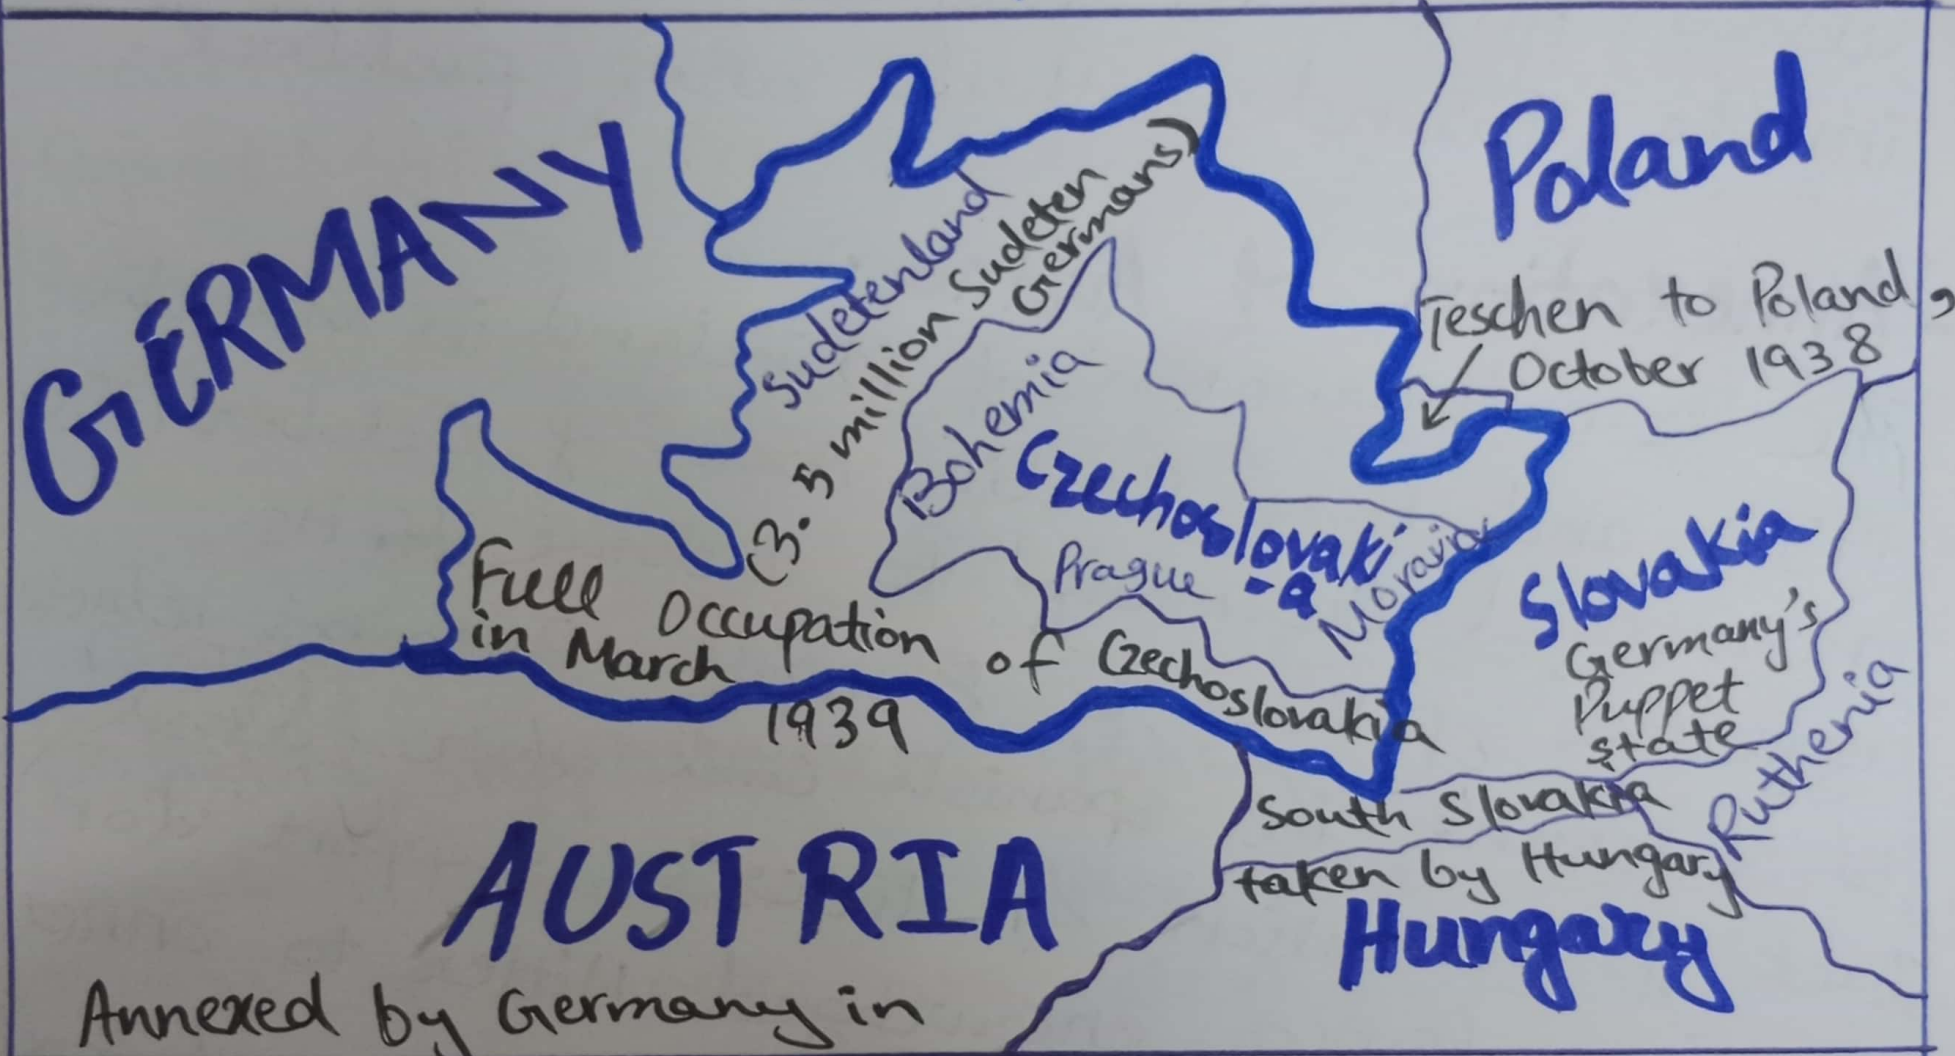 GERMANY
Poland
Sudetenland
(3.5 million Sudeten
Germans)
Teschen to Poland,
October 1938
Bohemia
Czechoslovaki
-a
Prague
Moravia
Slovakia
Germany's
Puppet
state
Ruthenia
Full Occupation of Czechoslovakia
in March 1939
South Slovakia
taken by Hungary
Hungary
AUSTRIA
Annexed by Germany in